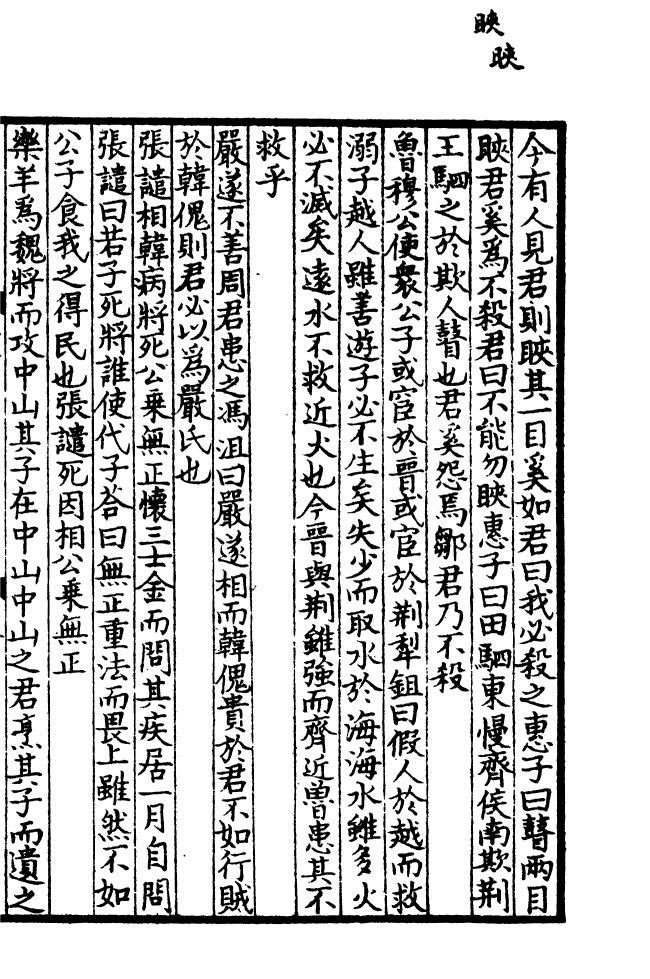 䀹
䀹
今有人見君則䀹其一目奚如君曰我必殺之惠子曰瞽兩目
䀹君奚爲不殺君曰不能勿䀹惠子曰田駟東慢齊侯南欺荆
王駟之於欺人瞽也君奚怨焉鄒君乃不殺
魯穆公使衆公子或宦於晉或宦於荆犁鉏曰假人於越而救
溺子越人雖善遊子必不生矣失少而取水於海海水雖多火
必不滅矣遠水不救近火也今晉與荆雖強而齊近魯患其不
救乎
嚴遂不善周君患之馮沮曰嚴遂相而韓傀貴於君不如行賊
於韓傀則君必以爲嚴氏也
張譴相韓病將死公乗無正懷三士金而問其疾居一月自問
張譴曰若子死將誰使代子荅曰無正重法而畏上雖然不如
公子食我之得民也張譴死因相公乗無正
樂羊爲魏將而攻中山其子在中山中山之君烹其子而遺之